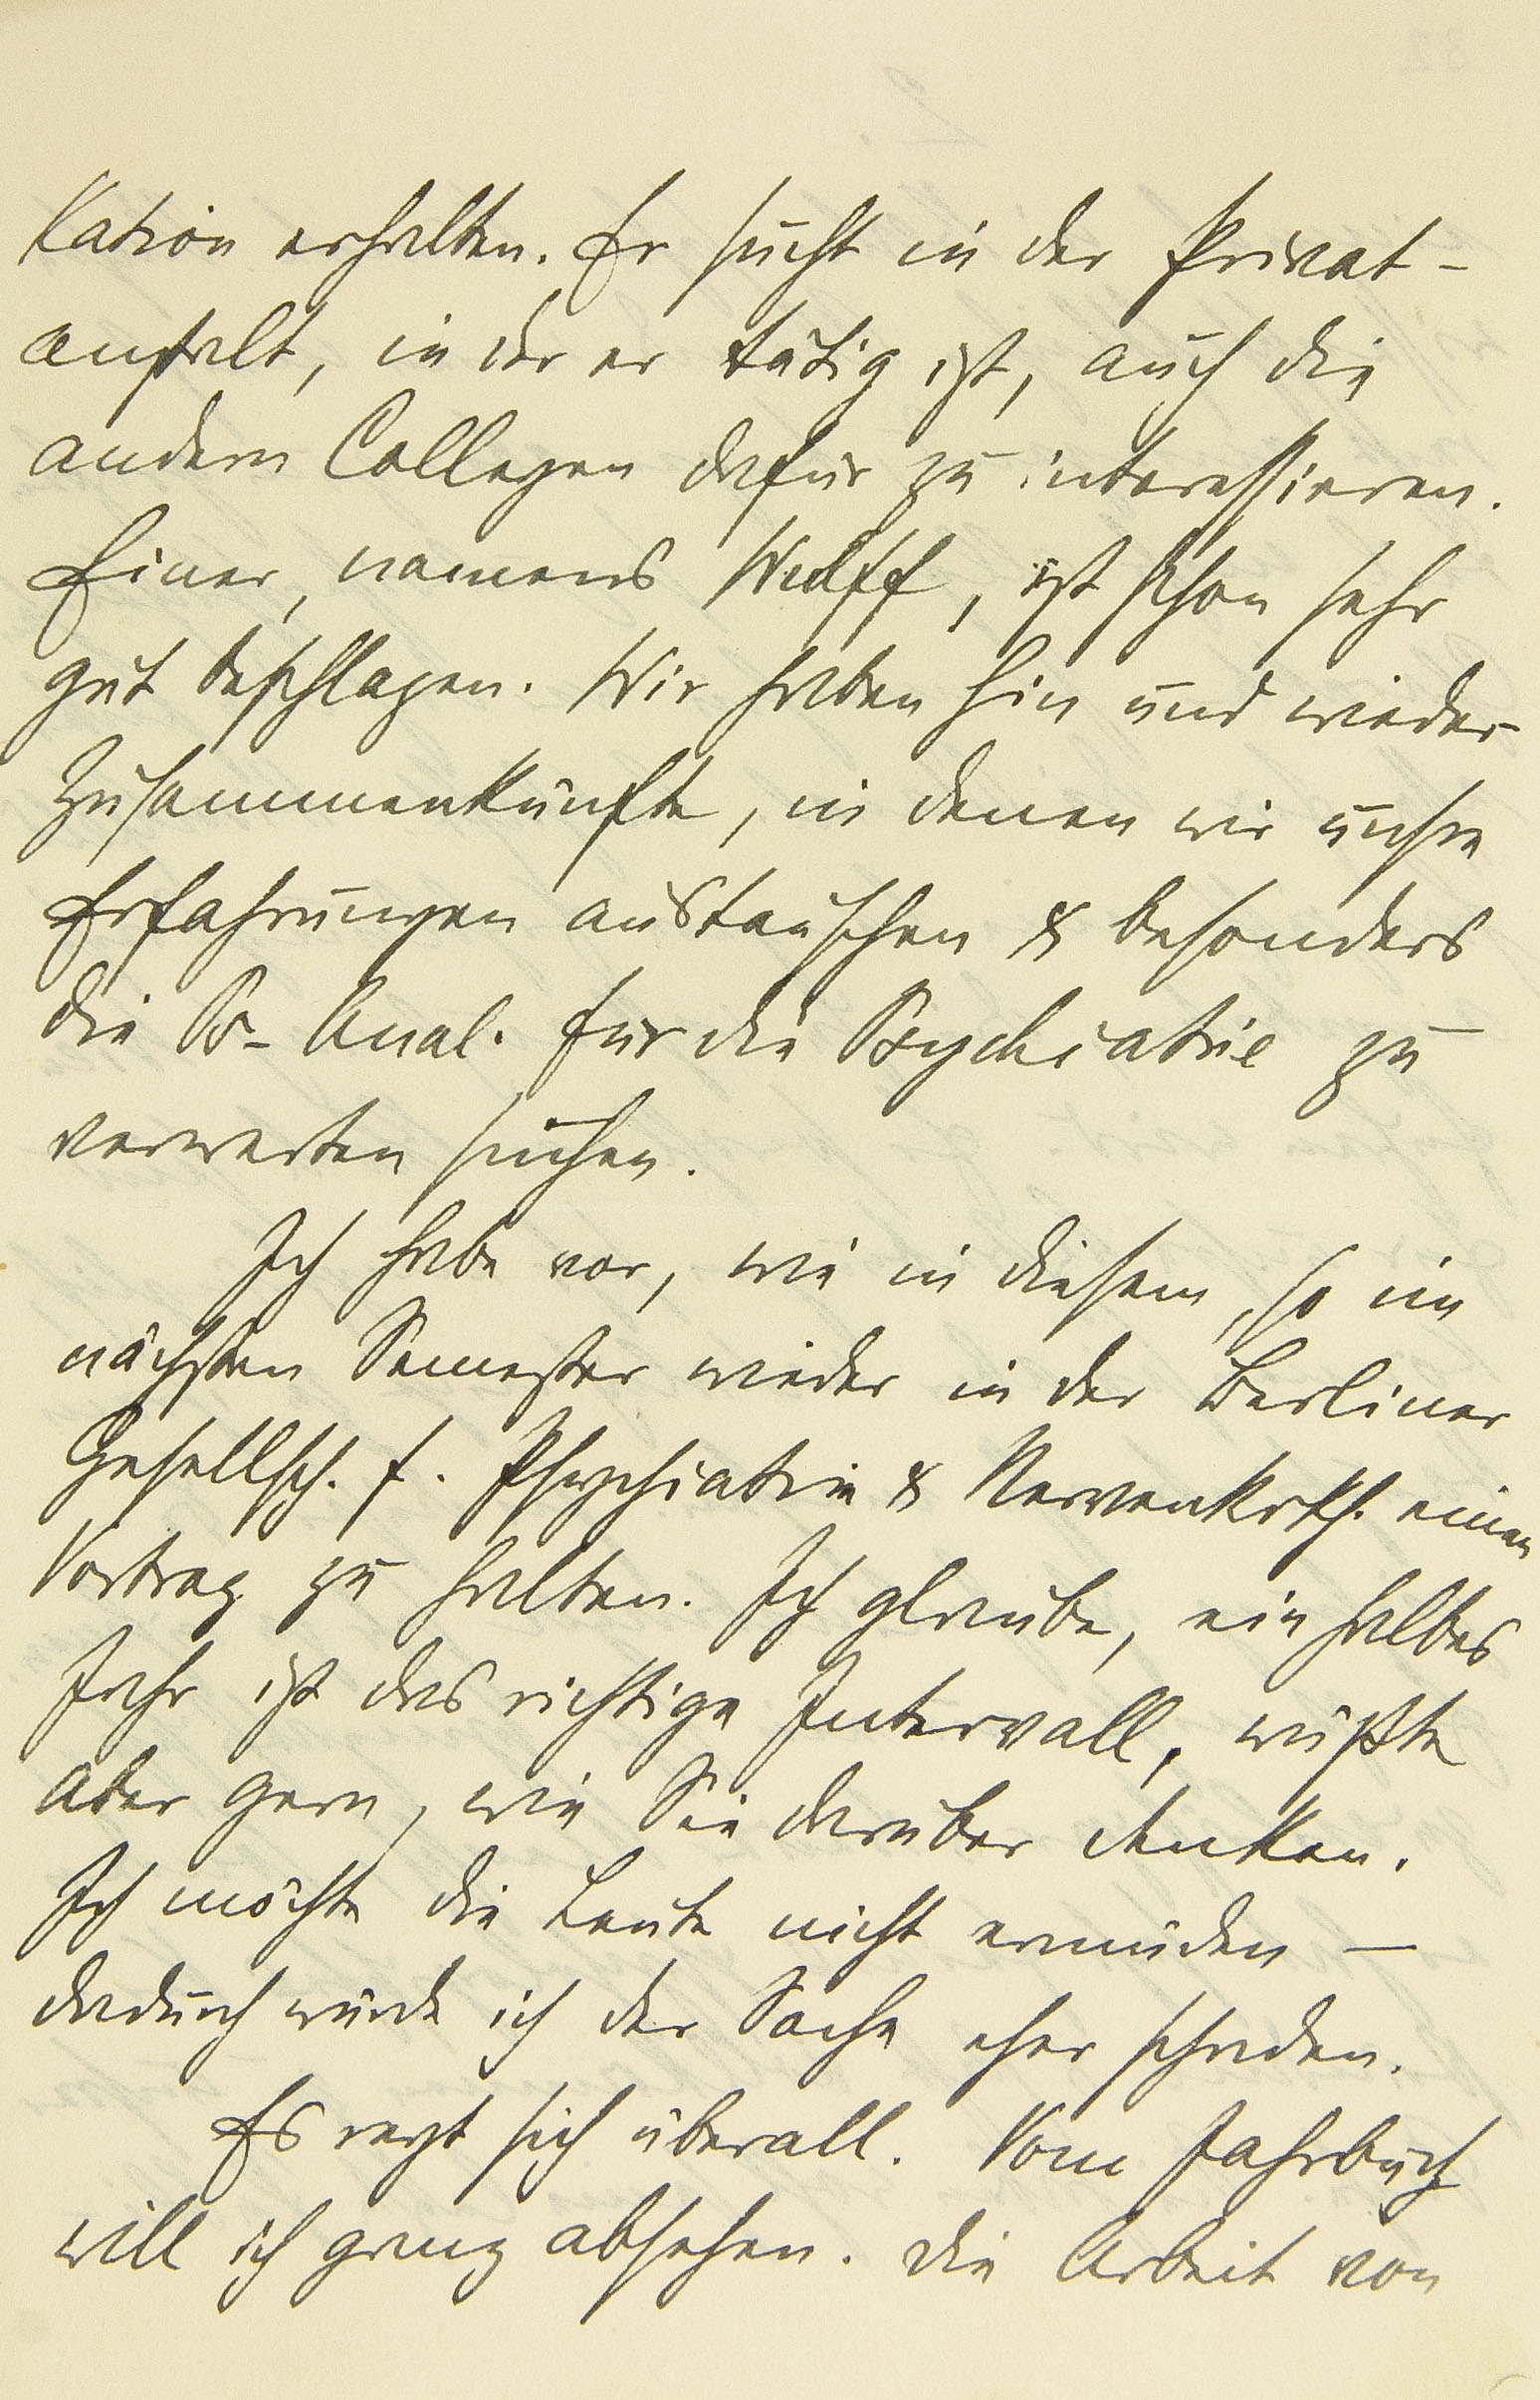 kation erhalten. Er sucht in der Privat-
anstalt, in der er tätig ist, auch die
andern Collegen dafür zu interessieren.
Einer, namens Wulff, ist schon sehr
gut beschlagen. Wir haben hin und wieder
Zusammenkünfte, in denen wir unsre
Erfahrungen austauschen & besonders
die Ψ-Anal. für die Ψychiatrie zu
verwerten suchen.
Ich habe vor, wie in diesem, so im
nächsten Semester wieder in der Berliner
Gesellsch. f. Psychiatrie & Nervenkrkh. einen
Vortrag zu halten. Ich glaube, ein halbes
Jahr ist das richtige Intervall, wüßte
aber gern, wie Sie darüber denken.
Ich möchte die Leute nicht ermüden —
dadurch würde ich der Sache eher schaden.
Es regt sich überall. Vom Jahrbuch
will ich ganz absehen. Die Arbeit von